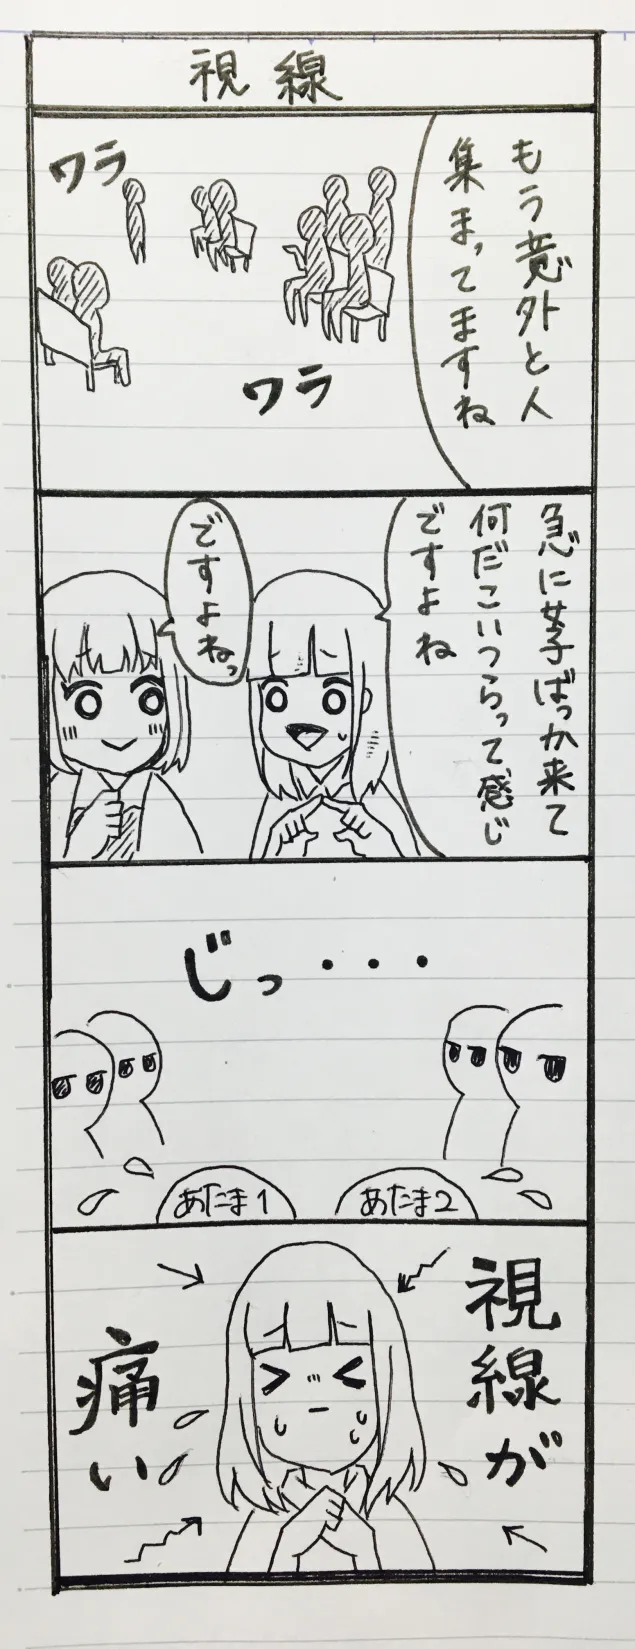 視線
もう意外と人
集まってますね
ワラ
ワラ
急に女子ばっか来て
何だこいつらって感じ
ですよね
ですよねっ
じっ・・・
あたま1
あたま2
視線が
痛い